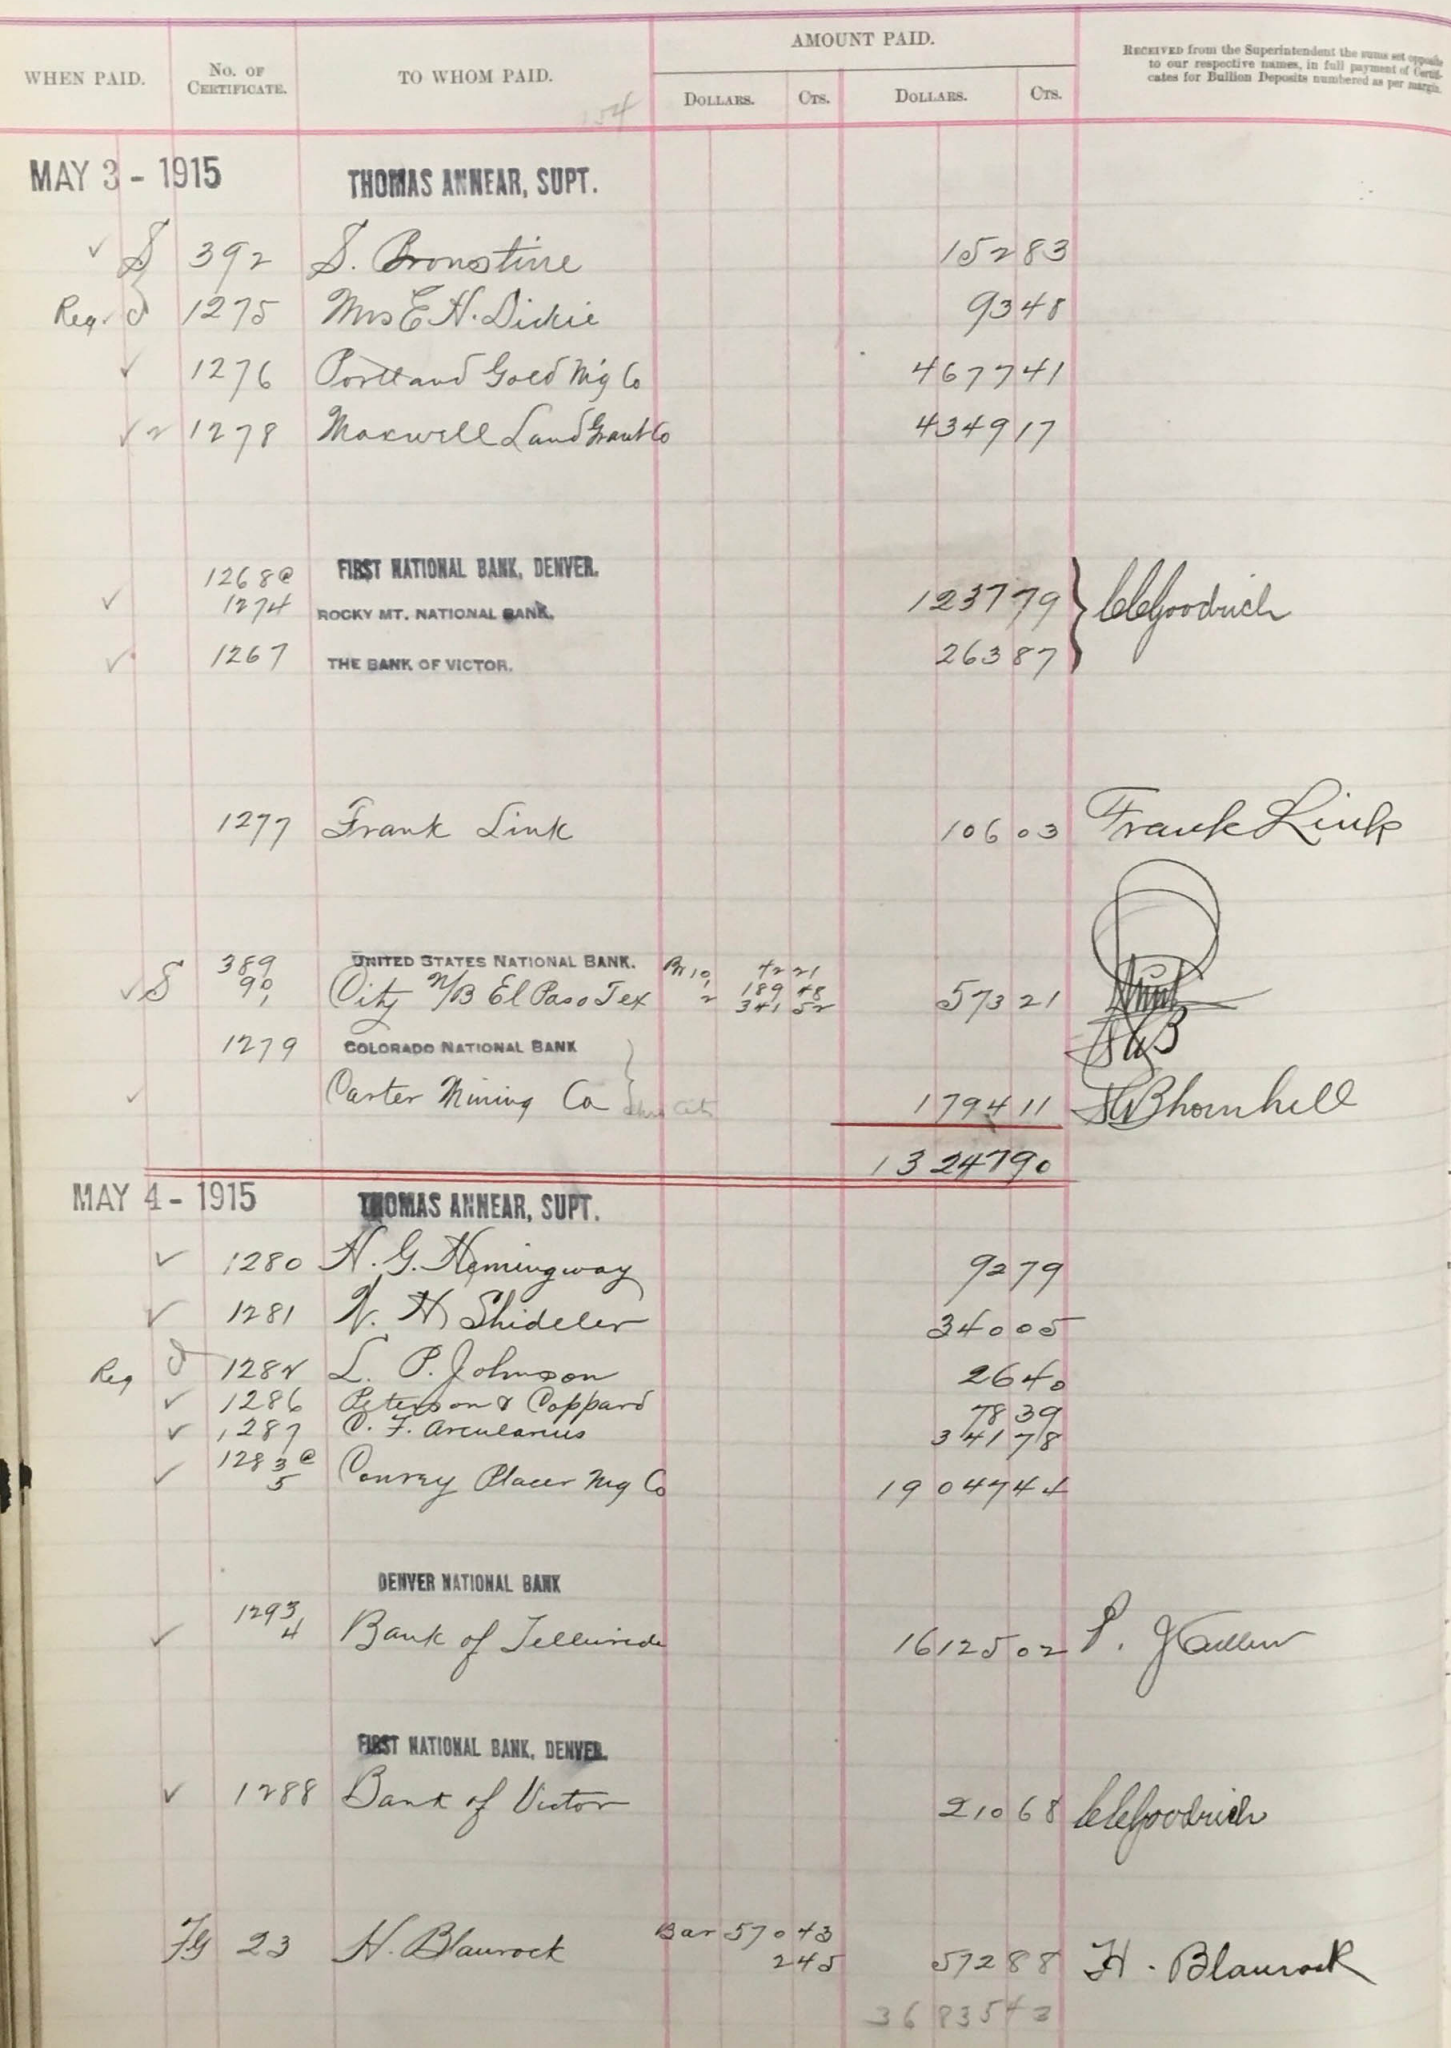 WHEN PAID. No. of Certificate. TO WHOM PAID. AMOUNT PAID. Dollars. Cts. Dollars. Cts.
Received from the Superintendent the sums set opposite
to our respective names, in full payment of Certifi-
cates for Bullion Deposits numbered as per margin.
154
MAY 3 - 1915 THOMAS ANNEAR, SUPT.
S 392 S. Bronstine 152 83
Reg. 1275 Mrs E H. Dickie 93 48
1276 Portland Gold M'g Co 4677 41
1278 Maxwell Land Grant Co 4349 17
1268 @ FIRST NATIONAL BANK, DENVER.
1274 ROCKY MT. NATIONAL BANK. 1237 79 Goodrich
1267 THE BANK OF VICTOR. 263 87
1277 Frank Link 106 03 Frank Link
389 UNITED STATES NATIONAL BANK. 42 21
S 90 City N/B El Paso Tex 189 48 573 21
1 2 341 52
1279 COLORADO NATIONAL BANK
Carter Mining Co 1794 11 Thornhill
13247 90
MAY 4 - 1915 THOMAS ANNEAR, SUPT.
1280 H. G. Hemingway 92 79
1281 W. H Shideler 340 05
Reg 1282 L. P. Johnson 26 40
1286 Peterson & Coppard 78 39
1287 C. F. Arcularius 341 78
1283 @
5 Conrey Placer Mg Co 19047 44
DENVER NATIONAL BANK
1293
4 Bank of Telluride 16125 02 P. J Cullen
FIRST NATIONAL BANK, DENVER.
1288 Bank of Victor 210 68 Goodrich
FG 23 H. Blaurock Bar 570 43
2 45 572 88 H. Blaurock
36835 43